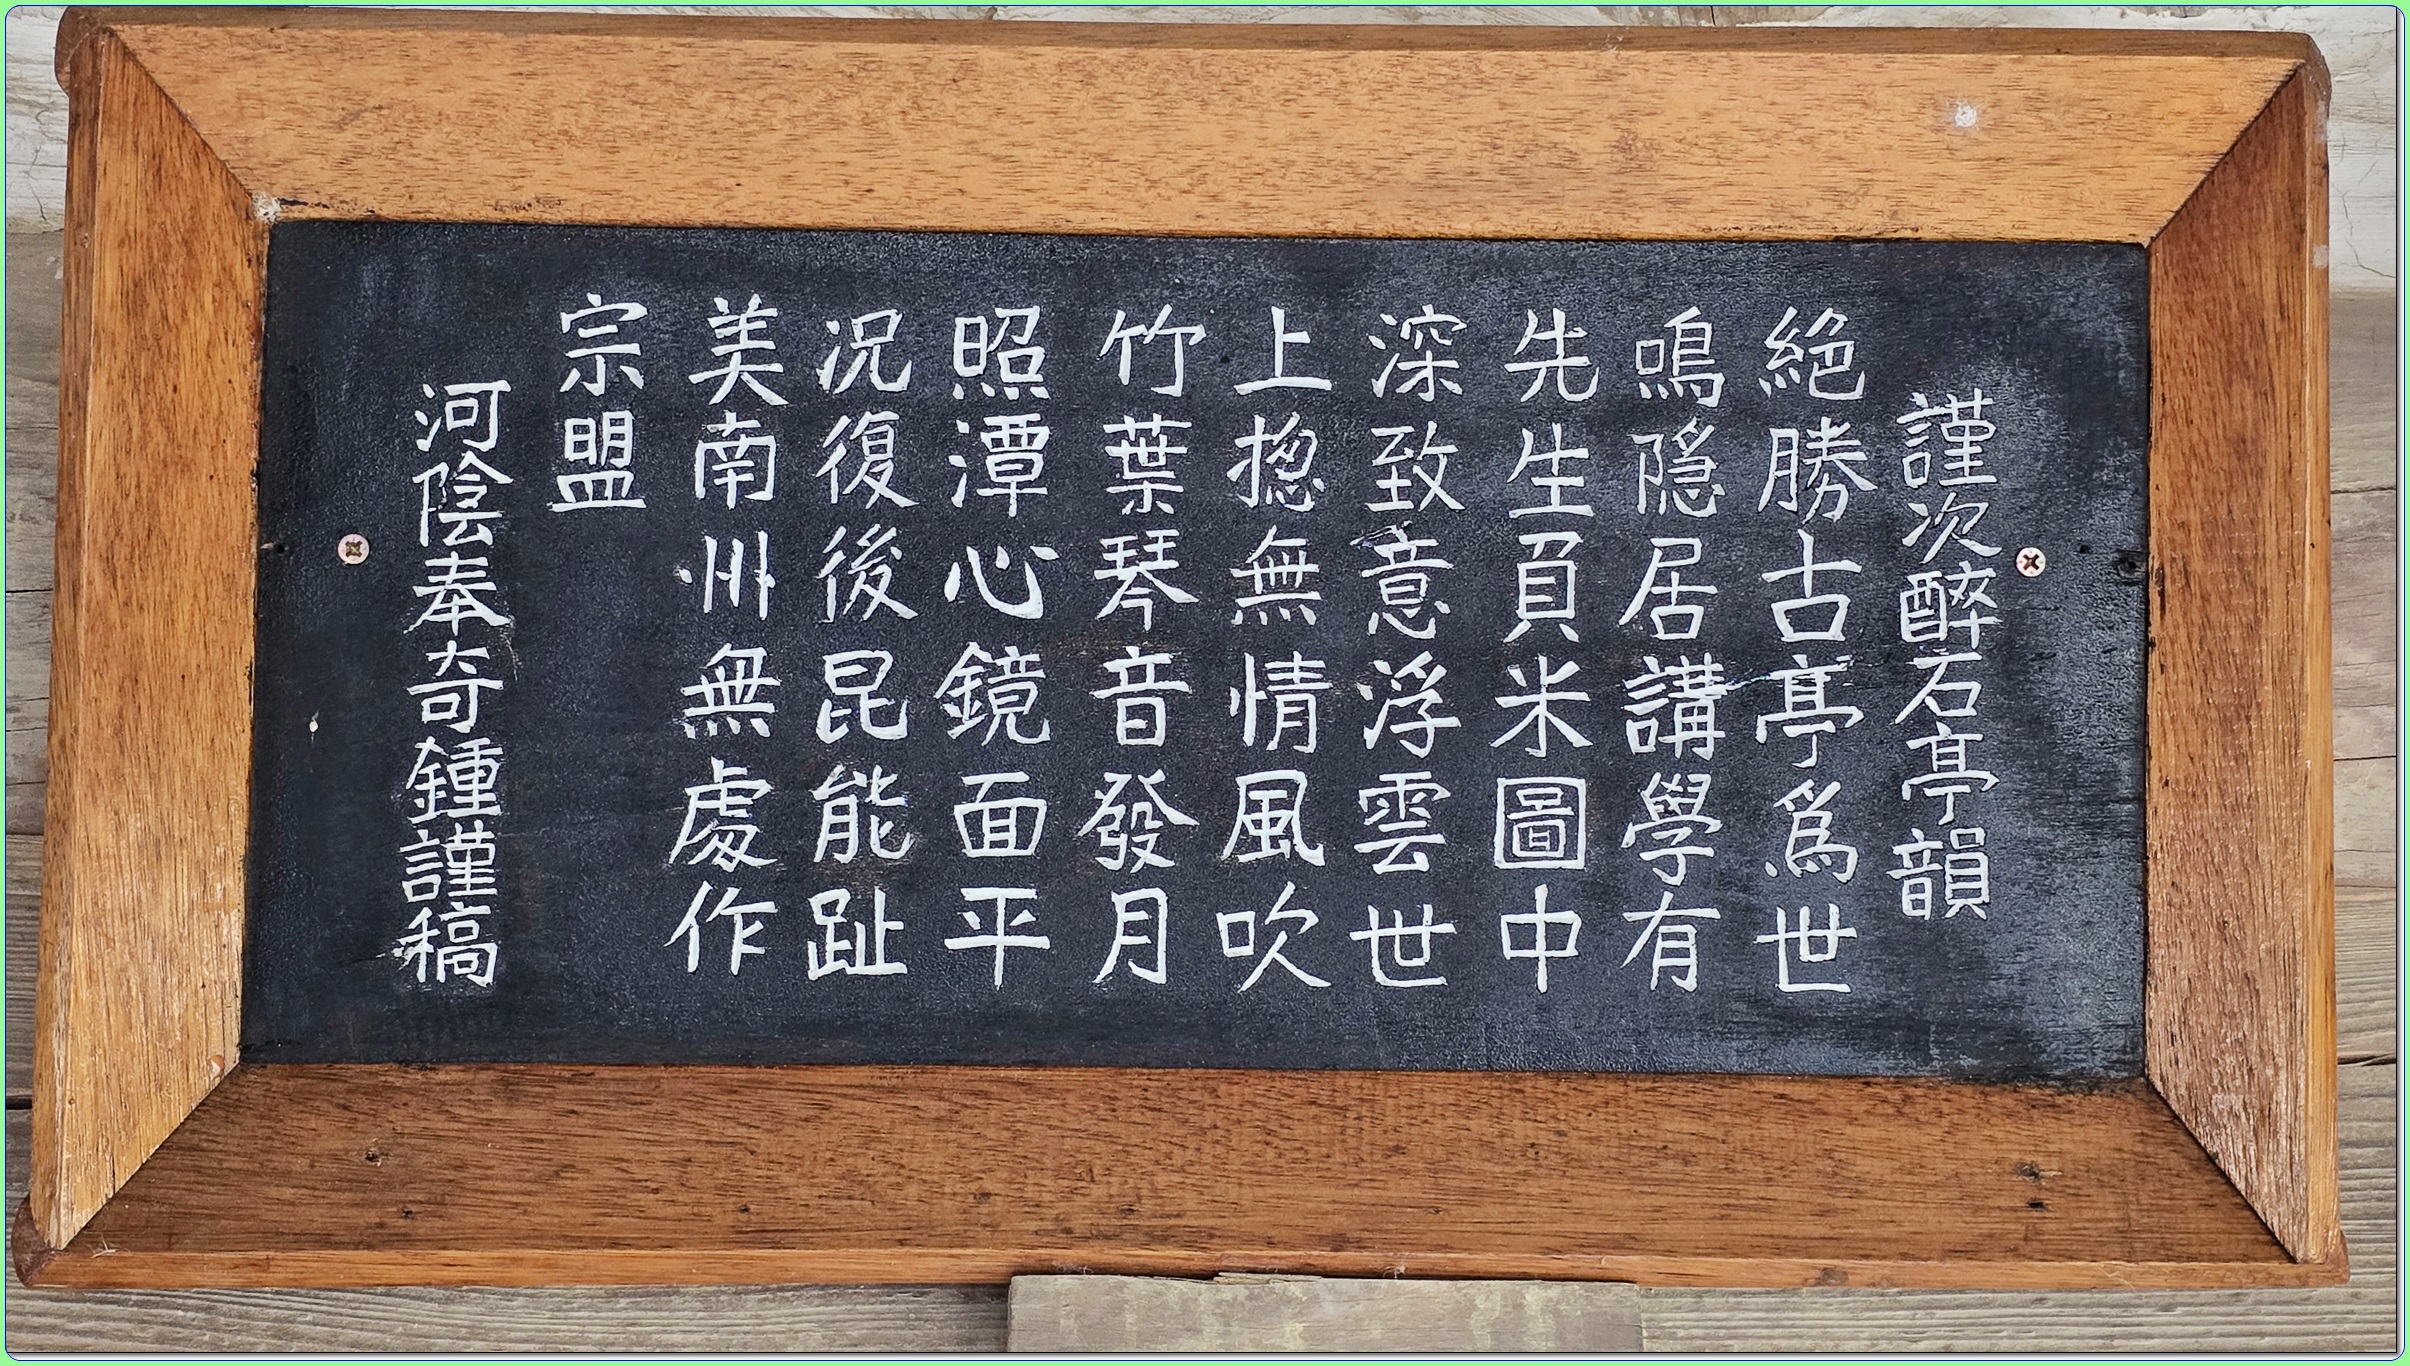 謹次醉石亭韻
絶勝古亭爲世
鳴隠居講學有
先生負米圖中
深致意浮雲世
上揔無情風吹
竹葉琴音發月
照潭心鏡面平
况復後昆能趾
美南州無處作
宗盟
河陰奉奇鍾謹稿